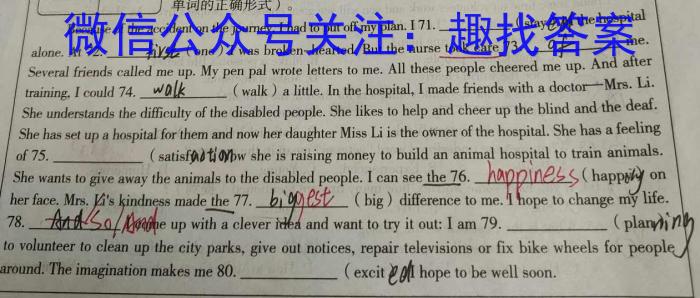 单词的正确形式）。
微信公众号关注：趣找答案
Because of the accident on the journey, I had to put off my plan. I 71. stay the hospital
alone. At 72. first one was broken-hearted. But the nurse took care 73. me.
Several friends called me up. My pen pal wrote letters to me. All these people cheered me up. And after
training, I could 74. walk ( walk ) a little. In the hospital, I made friends with a doctor—Mrs. Li.
She understands the difficulty of the disabled people. She likes to help and cheer up the blind and the deaf.
She has set up a hospital for them and now her daughter Miss Li is the owner of the hospital. She has a feeling
of 75. (satisfaction now she is raising money to build an animal hospital to train animals.
She wants to give away the animals to the disabled people. I can see the 76. happiness (happy on
her face. Mrs. Li's kindness made the 77. biggest ( big ) difference to me. I hope to change my life.
78. And/So/And me up with a clever idea and want to try it out: I am 79. ( planning
to volunteer to clean up the city parks, give out notices, repair televisions or fix bike wheels for people
around. The imagination makes me 80. ( excited I hope to be well soon.